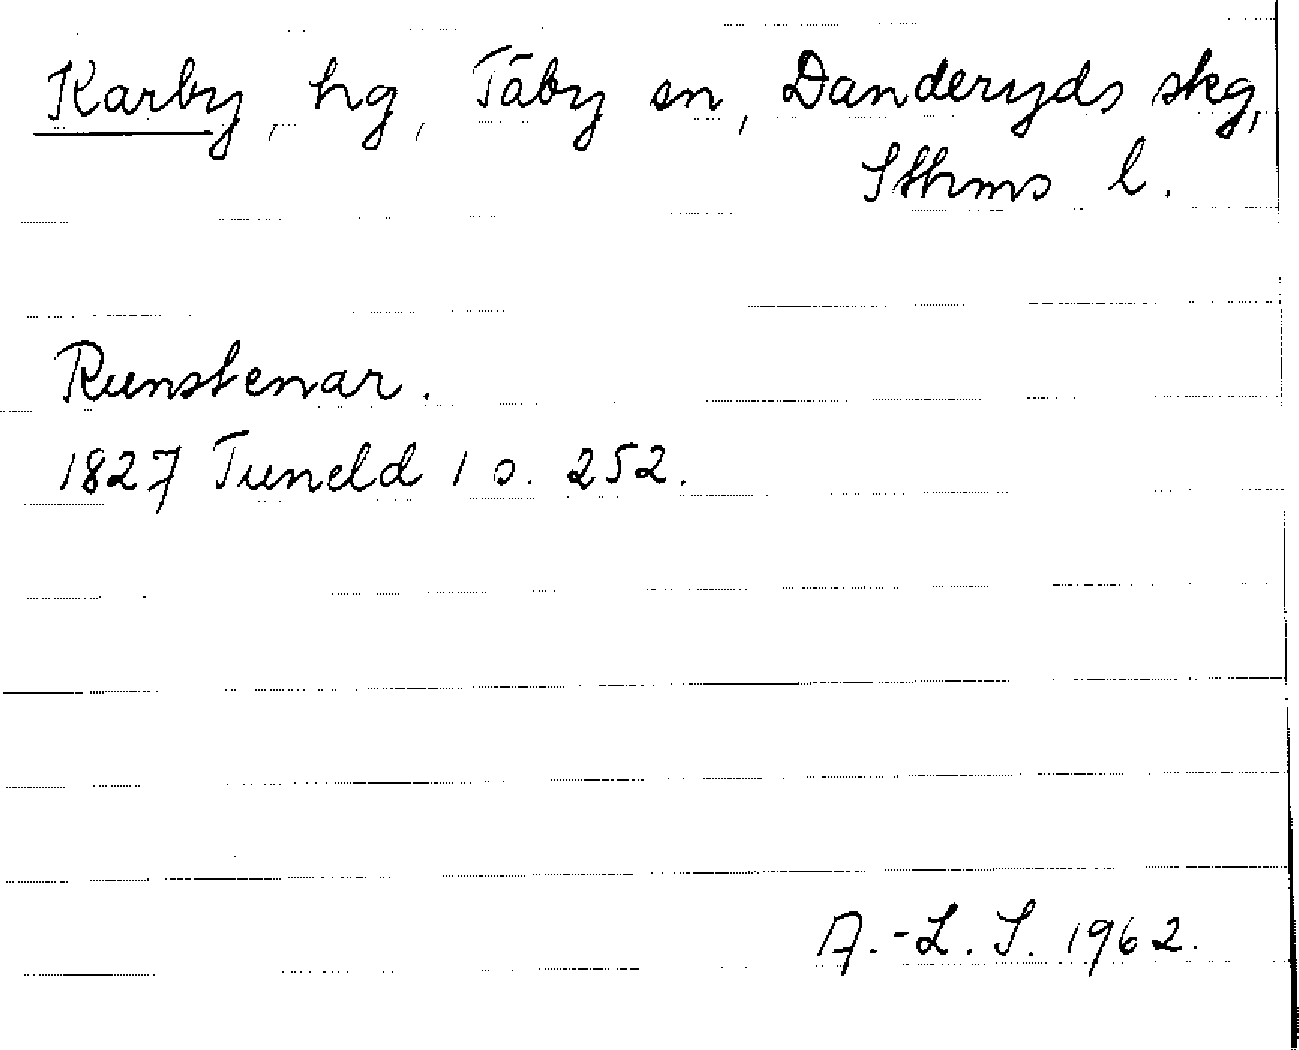 Karby, hg, Täby sn, Danderyds skg,
Sthms l.
Runstenar.
1827 Tuneld 1 s. 252.
A.-L. S. 1962.